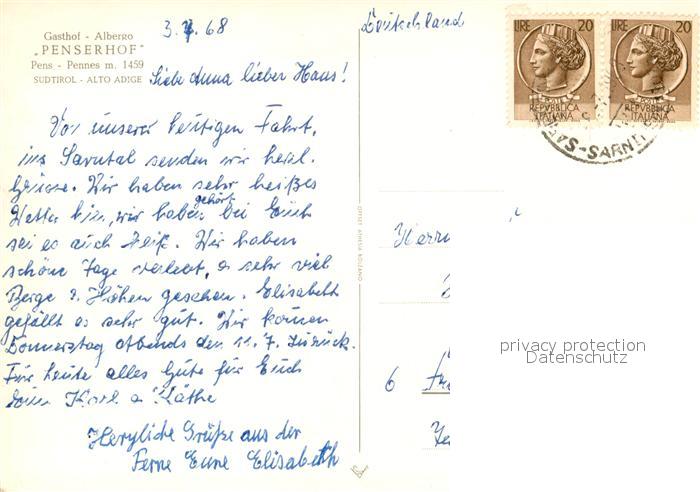 Gasthof - Albergo
„PENSERHOF"
Pens - Pennes m. 1459
SÜDTIROL - ALTO ADIGE
3. 7. 68
Liebe Anna lieber Hans!
Von unserer heutigen Fahrt,
ins Sarntal senden wir herzl.
Grüsse. Wir haben sehr heißes
Wetter hier, wir haben gehört bei Euch
sei es auch heiß. Wir haben
schöne Tage verlebt, sehr viel
Berge u. Höhen gesehen. Elisabeth
gefällt es sehr gut. Wir kommen
Donnerstag abends den 11. 7. zurück.
Für heute alles Gute für Euch
Karl u Käthe
Herzliche Grüße aus der
Ferne Eure Elisabeth
OFFSET ATHESIA BOLZANO
Deutschland
LIRE 20
REPVBBLICA
ITALIANA
LIRE 20
REPVBBLICA
ITALIANA
Herrn
6
privacy protection
Datenschutz